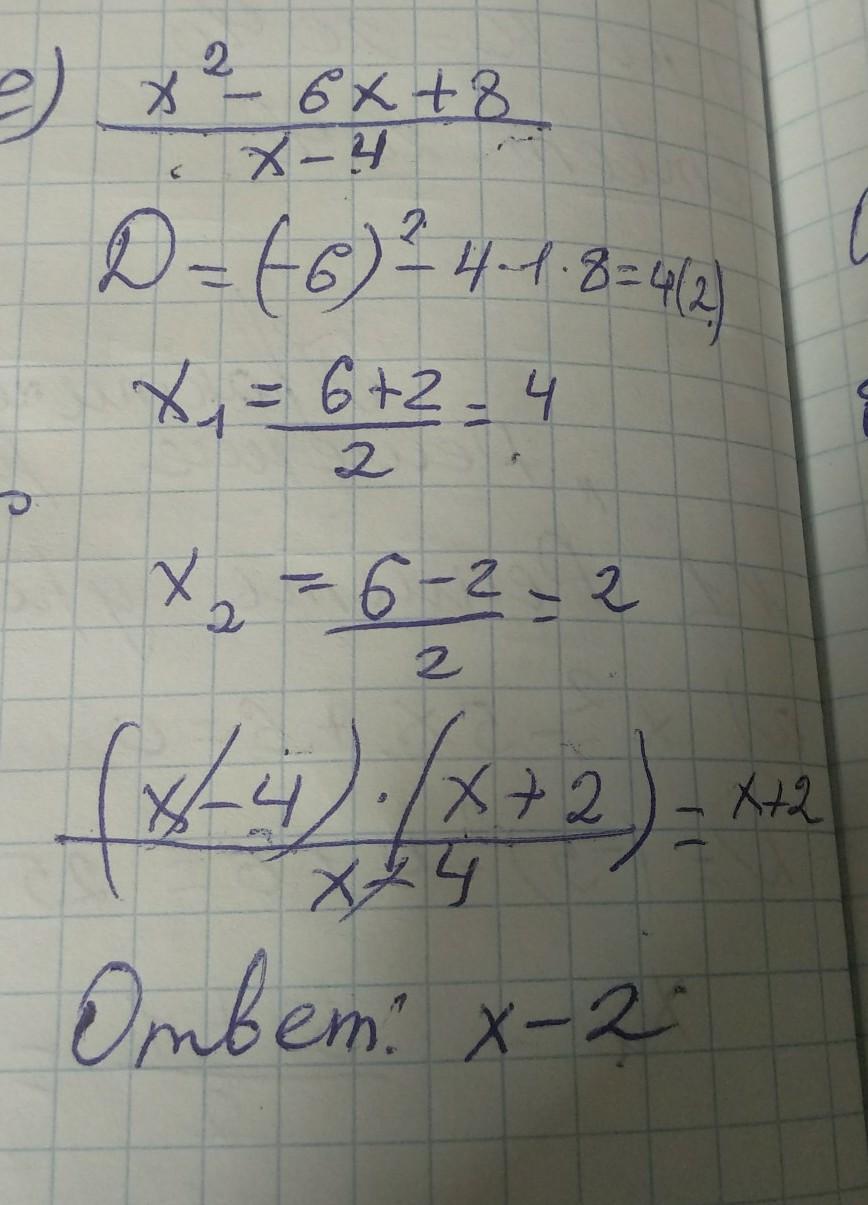 е) x² - 6x + 8
x - 4
D = (-6)² - 4·1·8 = 4(2)
x₁ = 6+2 = 4
2
x₂ = 6-2 = 2
2
(x-4)·(x+2) = x+2
x-4
Ответ: x-2